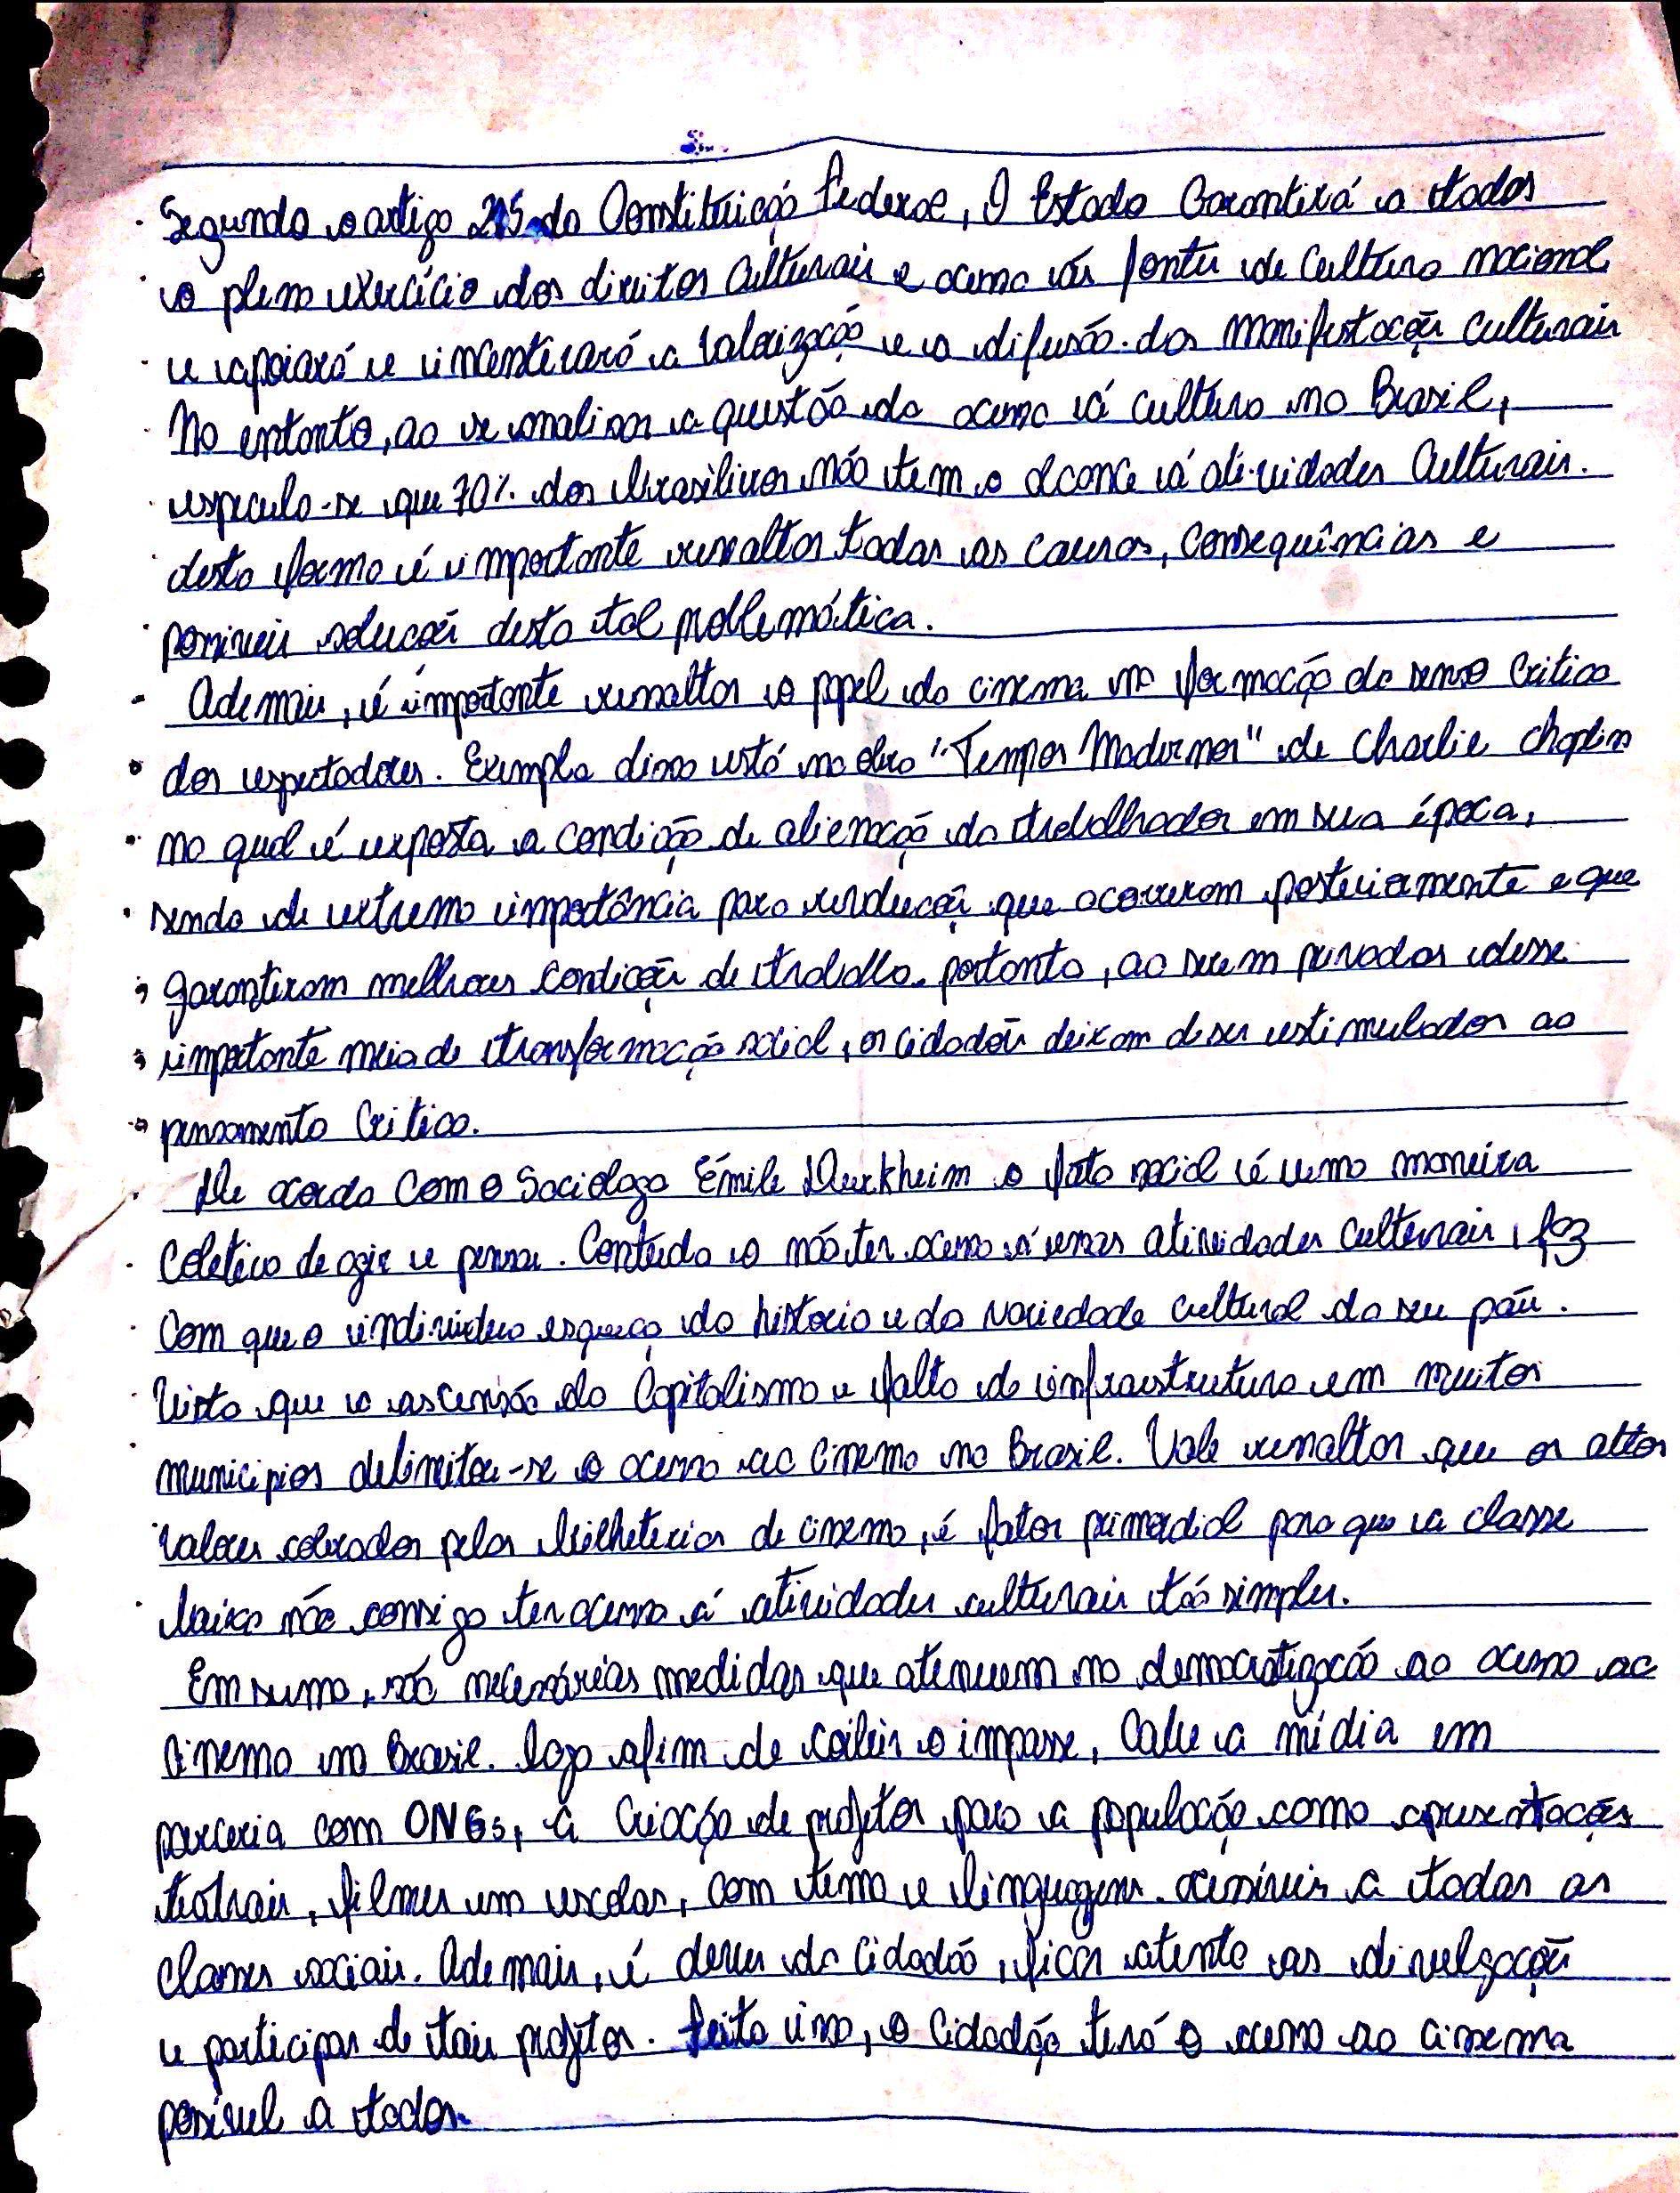 Segundo o artigo 215 da Constituição Federal, O Estado Garantirá a todos
o pleno exercício dos direitos Culturais e acesso ás fontes de Cultura nacional
e apoiará e incentivará a Valorização e a difusão das manifestações Culturais
No entanto, ao se analisar a questão do acesso á cultura no Brasil,
especula-se que 70% dos brasileiros não tem o alcance á atividades Culturais.
desta forma é importante ressaltar todas as causas, consequências e
possíveis soluções desta tal problemática.
Ademais, é importante ressaltar o papel do cinema na formação do senso Crítico
dos espectadores. Exemplo disso está na obra "Tempos Modernos" de Charlie Chaplin
no qual é exposta a condição de alienação do trabalhador em sua época,
sendo de extrema importância para revoluções que ocorreram posteriormente e que
garantiram melhores condições de trabalho. portanto, ao serem privados desse
importante meio de transformação social, os cidadões deixam de ser estimulados ao
pensamento Crítico.
De acordo Com o Sociólogo Émile Durkheim o fato social é uma maneira
Coletiva de agir e pensar. Contudo o não ter acesso á essas atividades Culturais, faz
Com que o indivíduo esqueça da história e da variedade Cultural do seu país.
Visto que a ascensão do Capitalismo e falta de infraestrutura em muitos
municípios delimitou-se o acesso ao Cinema no Brasil. Vale ressaltar que os altos
Valores cobrados pelas bilheterias de cinema, é fator primordial para que a classe
baixa não consiga ter acesso á atividades culturais tão simples.
Em suma, são necessárias medidas que atenuem na democratização ao acesso ao
Cinema no Brasil. logo afim de coibir o impasse, Cabe a mídia em
parceria com ONGs, a Criação de projetos para a população como apresentações
teatrais, filmes em escolas, com tema e linguagens acessíveis a todas as
classes sociais. Ademais, é dever do Cidadão, ficar atento as divulgações
e participar de tais projetos. feito isso, o Cidadão terá o acesso ao Cinema
possível a todos.